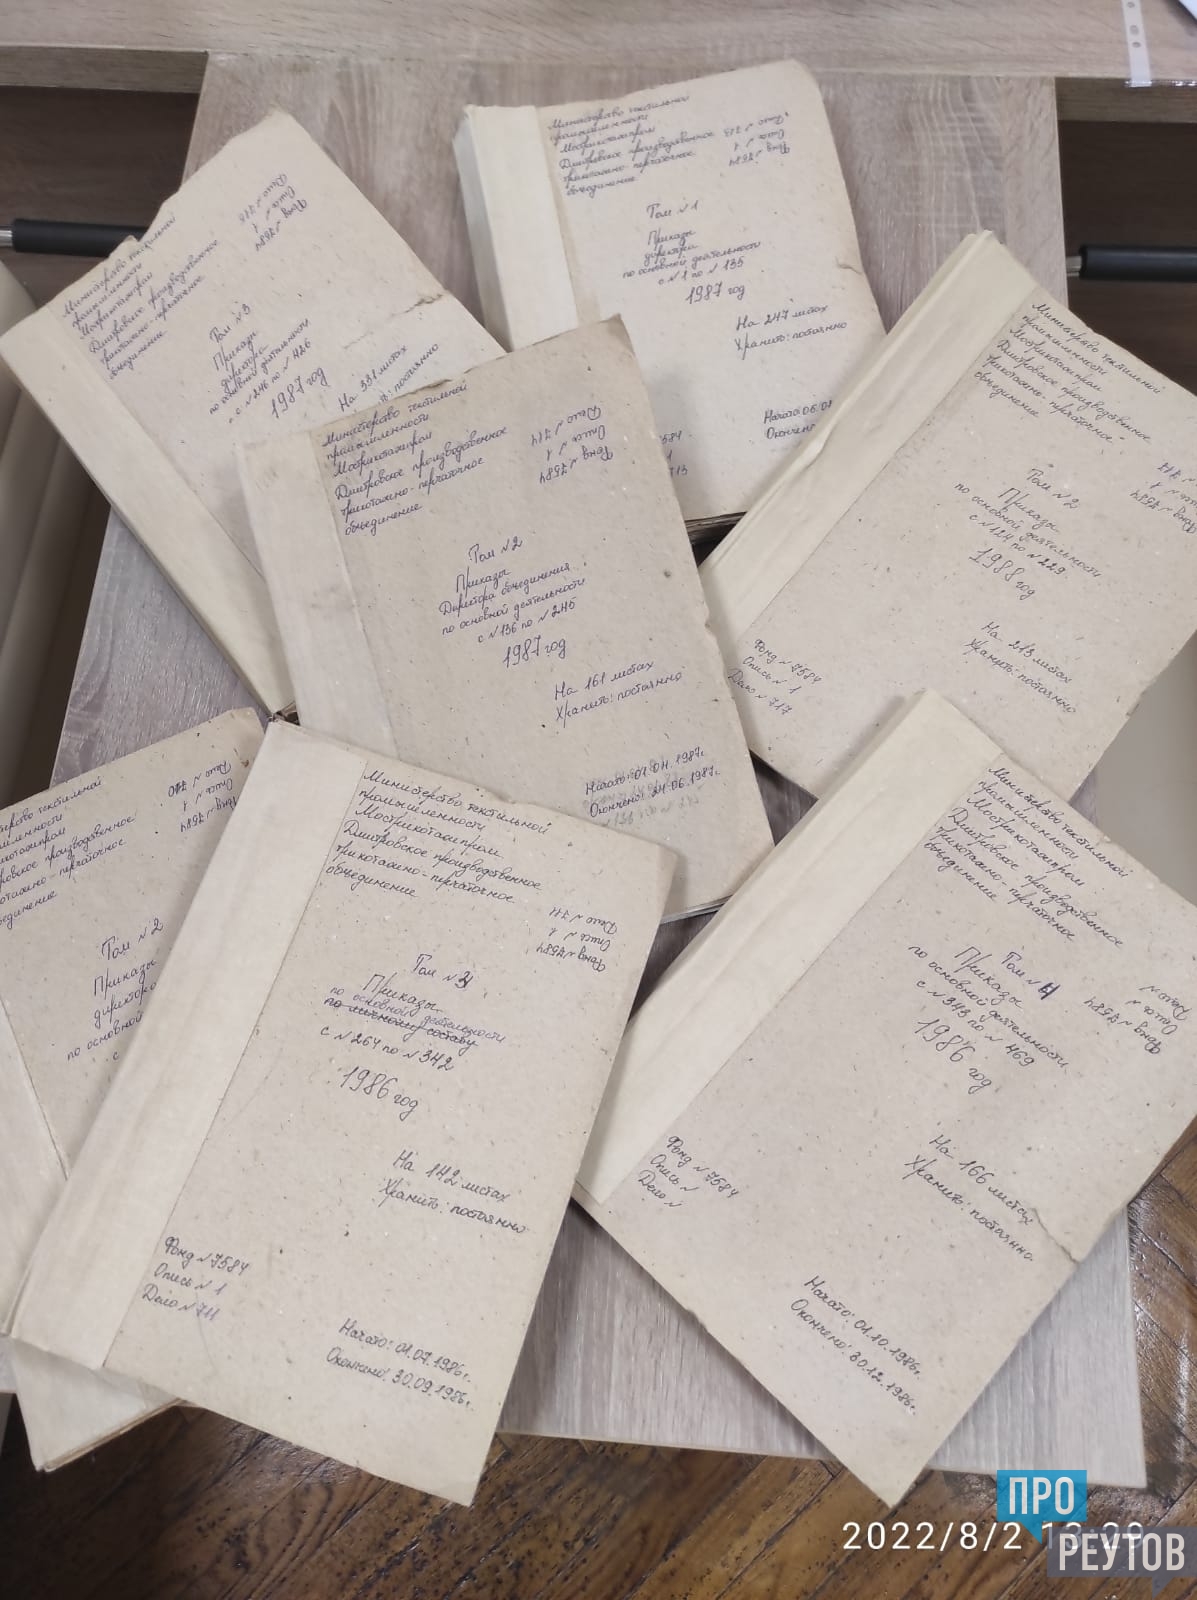 Министерство текстильной
промышленности
Мострикотажпром
Дмитровское производственное
трикотажно-перчаточное
объединение
Фонд N 7584
Опись N 1
Дело N 713
Том N 1
Приказы
директора
по основной деятельности
с N 1 по N 135
1987 год
На 247 листах
Хранить: постоянно
Начато 06.01
Окончено
7584.
1
713
Министерство текстильной
промышленности
Мострикотажпром
Дмитровское производственное
трикотажно-перчаточное
объединение
Фонд N 7584
Опись N 1
Дело N 715
Том N 3
Приказы
директора
по основной деятельности
с N 246 по N 426
1987 год
На 331 листах
постоянно
Министерство текстильной
промышленности
Мострикотажпром
Дмитровское производственное
трикотажно-перчаточное
объединение
Фонд N 7584
Опись N 1
Дело N 714
Том N 2
Приказы
Директора объединения
по основной деятельности
с N 136 по N 245
1987 год
На 161 листах
Хранить: постоянно
Начато: 01.04.1987г.
Окончено: 24.06.1987г.
Министерство текстильной
промышленности
Мострикотажпром
Дмитровское производственное
трикотажно-перчаточное
объединение
Фонд N 7584
Опись N 1
N 717
Том N 2
Приказы
по основной деятельности
с N 124 по N 229
1988 год
На 213 листах
Хранить: постоянно
Фонд N 7584
Опись N 1
Дело N 717
текстильной
производственное
перчаточное
Фонд N 7584
Опись N 1
Дело N 710
Том N 2
Приказы
директора
по основной
с
Министерство текстильной
промышленности
Мострикотажпром
Дмитровское производственное
трикотажно-перчаточное
объединение
Фонд N 7584
Опись N 1
Дело N 711
Том N 3
Приказы
по основной деятельности
по личному составу
с N 264 по N 342
1986 год
На 142 листах
Хранить: постоянно
Фонд N 7584
Опись N 1
Дело N 711
Начато: 01.07.1986г.
Окончено: 30.09.1986г.
Министерство текстильной
промышленности
Мострикотажпром
Дмитровское производственное
трикотажно-перчаточное
объединение
Фонд N 7584
Опись N
Дело N
Том N 4
Приказы
по основной деятельности
с N 343 по N 469
1986 год
На 166 листах
Хранить: постоянно
Фонд N 7584
Опись N
Дело N
Начато: 01.10.1986г.
Окончено: 30.12.1986г.
2022/8/2 13:29
ПРО
РЕУТОВ